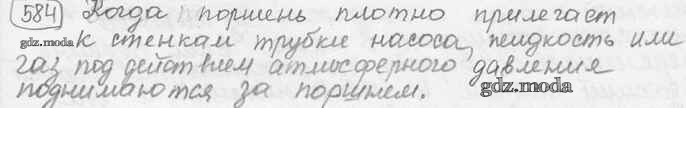 584 Когда поршень плотно прилегает
gdz.moda к стенкам трубки насоса, жидкость или
газ под действием атмосферного давления
поднимаются за поршнем. gdz.moda